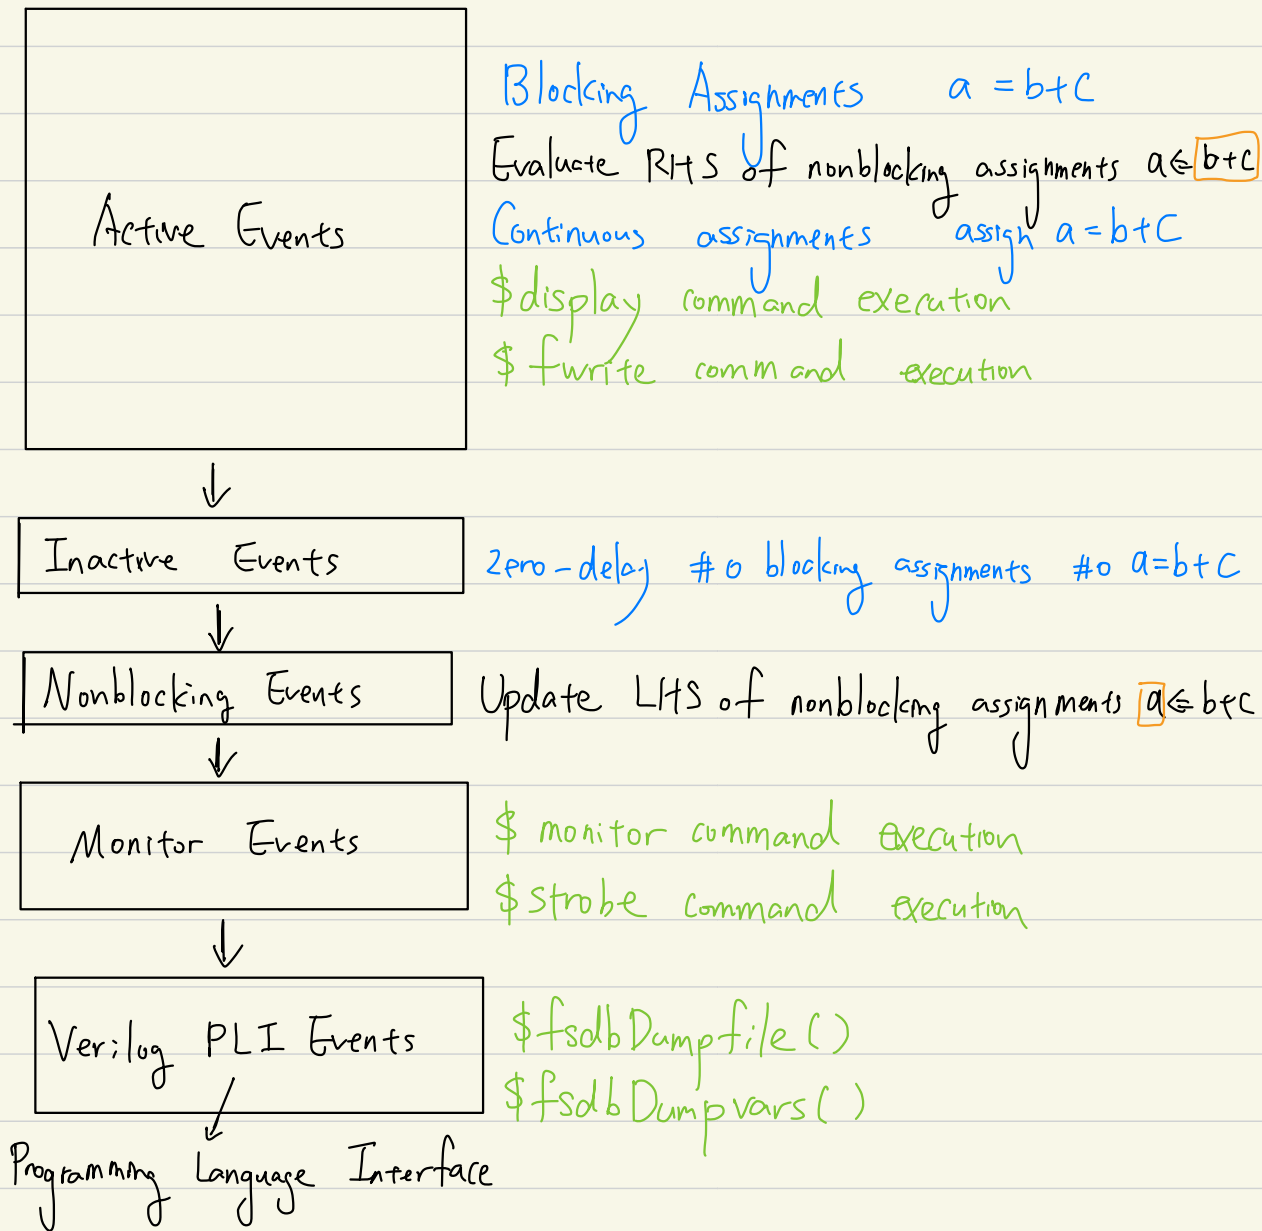 Blocking Assignments a = b+c
Evaluate RHS of nonblocking assignments a <= b+c
Active Events
Continuous assignments assign a = b+c
$display command execution
$fwrite command execution
Inactive Events
Zero-delay #0 blocking assignments #0 a=b+c
Nonblocking Events
Update LHS of nonblocking assignments a <= b+c
Monitor Events
$monitor command execution
$strobe command execution
Verilog PLI Events
$fsdbDumpfile()
$fsdbDumpvars()
Programming Language Interface